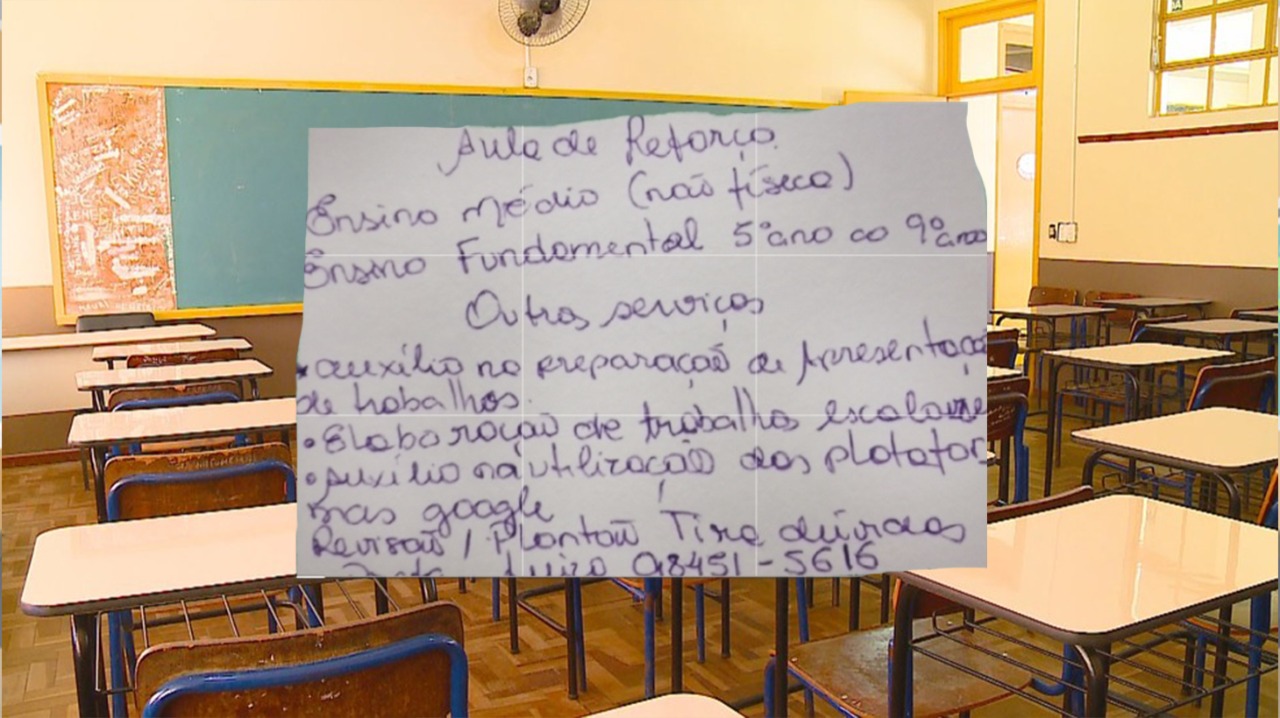 Aula de Reforço
Ensino Médio (não física)
Ensino Fundamental 5º ano ao 9º ano
Outros serviços
• auxílio na preparação de Apresentaçao
de trabalhos.
• Elaboração de trabalhos escolares
• Auxílio na utilização das platafor
mas google
Revisão / Plantão Tira dúvidas
98451-5616